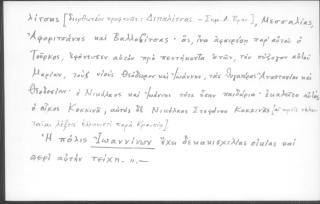 λίτσας [διορθωτέον προφανῶς: Διπαλίτσας. - Σημ. Λ. Πρωτ.], Μεσσαλίας,
Ἀφορισιάνης καὶ Βαλλοβίτσας· ὅς, ἵνα ἀφαιρέσῃ παρ' αὐτοῦ ὁ
Τοῦρκος, ἐφόνευσεν αὐτὸν πρὸ πεντήκοντα ἐτῶν, τὸν σύζυγον αὐτοῦ
Μαρίαν, τοὺς υἱοὺς Θεόδωρον καὶ Ἰωάννην, τὰς θυγατέρας Ἀναστασίαν καὶ
Θεοδοσίαν· ὁ Νικόλαος καὶ Ἰωάννης τότε ἦσαν παιδάρια· ἐκαλεῖτο αὐτὸς
ὁ οἶκος Κοκκινᾶ, αὐτὸς δὲ Νικόλαος Στεφάνου Κοκκινᾶς [αἱ τρεῖς τελευ-
ταῖαι λέξεις ἑλληνιστὶ παρὰ Κρουσίῳ].
Ἡ πόλις Ἰωαννίνων ἔχει δεκακισχιλίας οἰκίας καὶ
περὶ αὐτὴν τείχη. ". —